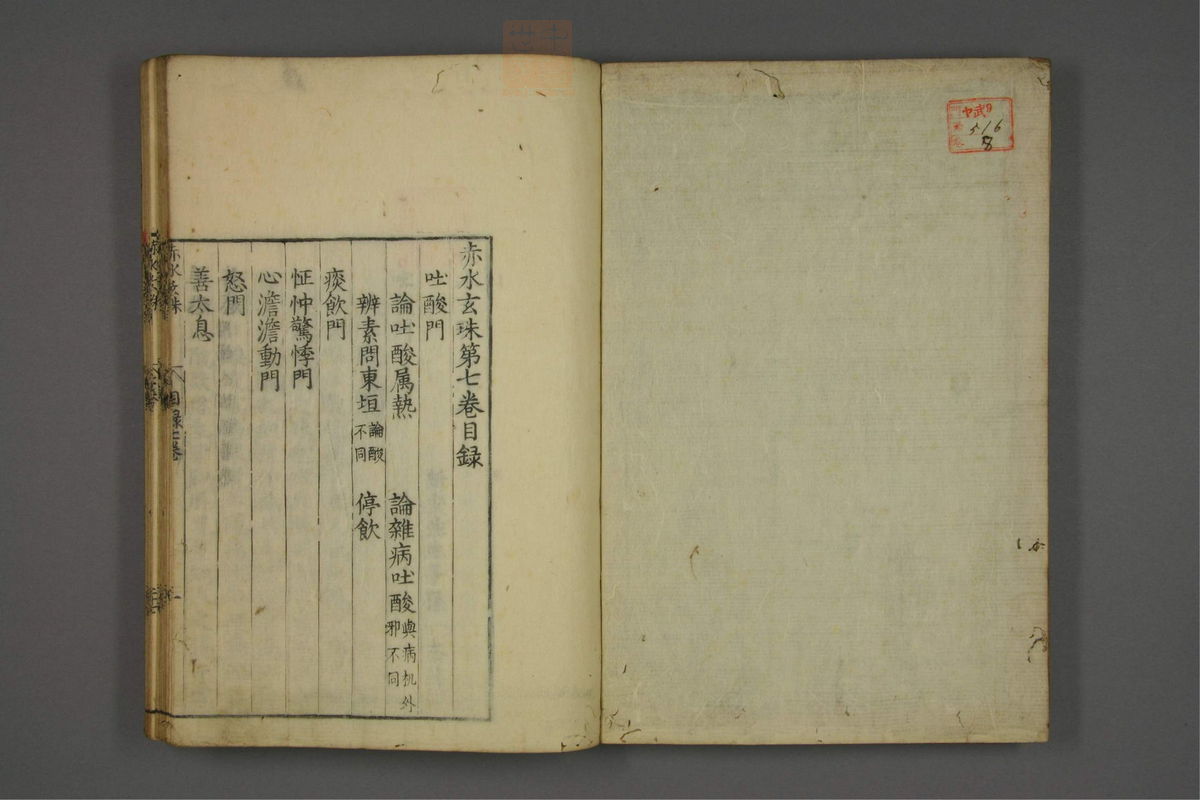 赤水玄珠第七卷目録
吐酸門
論吐酸属熱 論雜病吐酸與病机外邪不同
辨素問東垣論酸不同 停飲
痰飲門
怔忡驚悸門
心澹澹動門
怒門
善太息
赤水玄珠
目録七卷
516
8